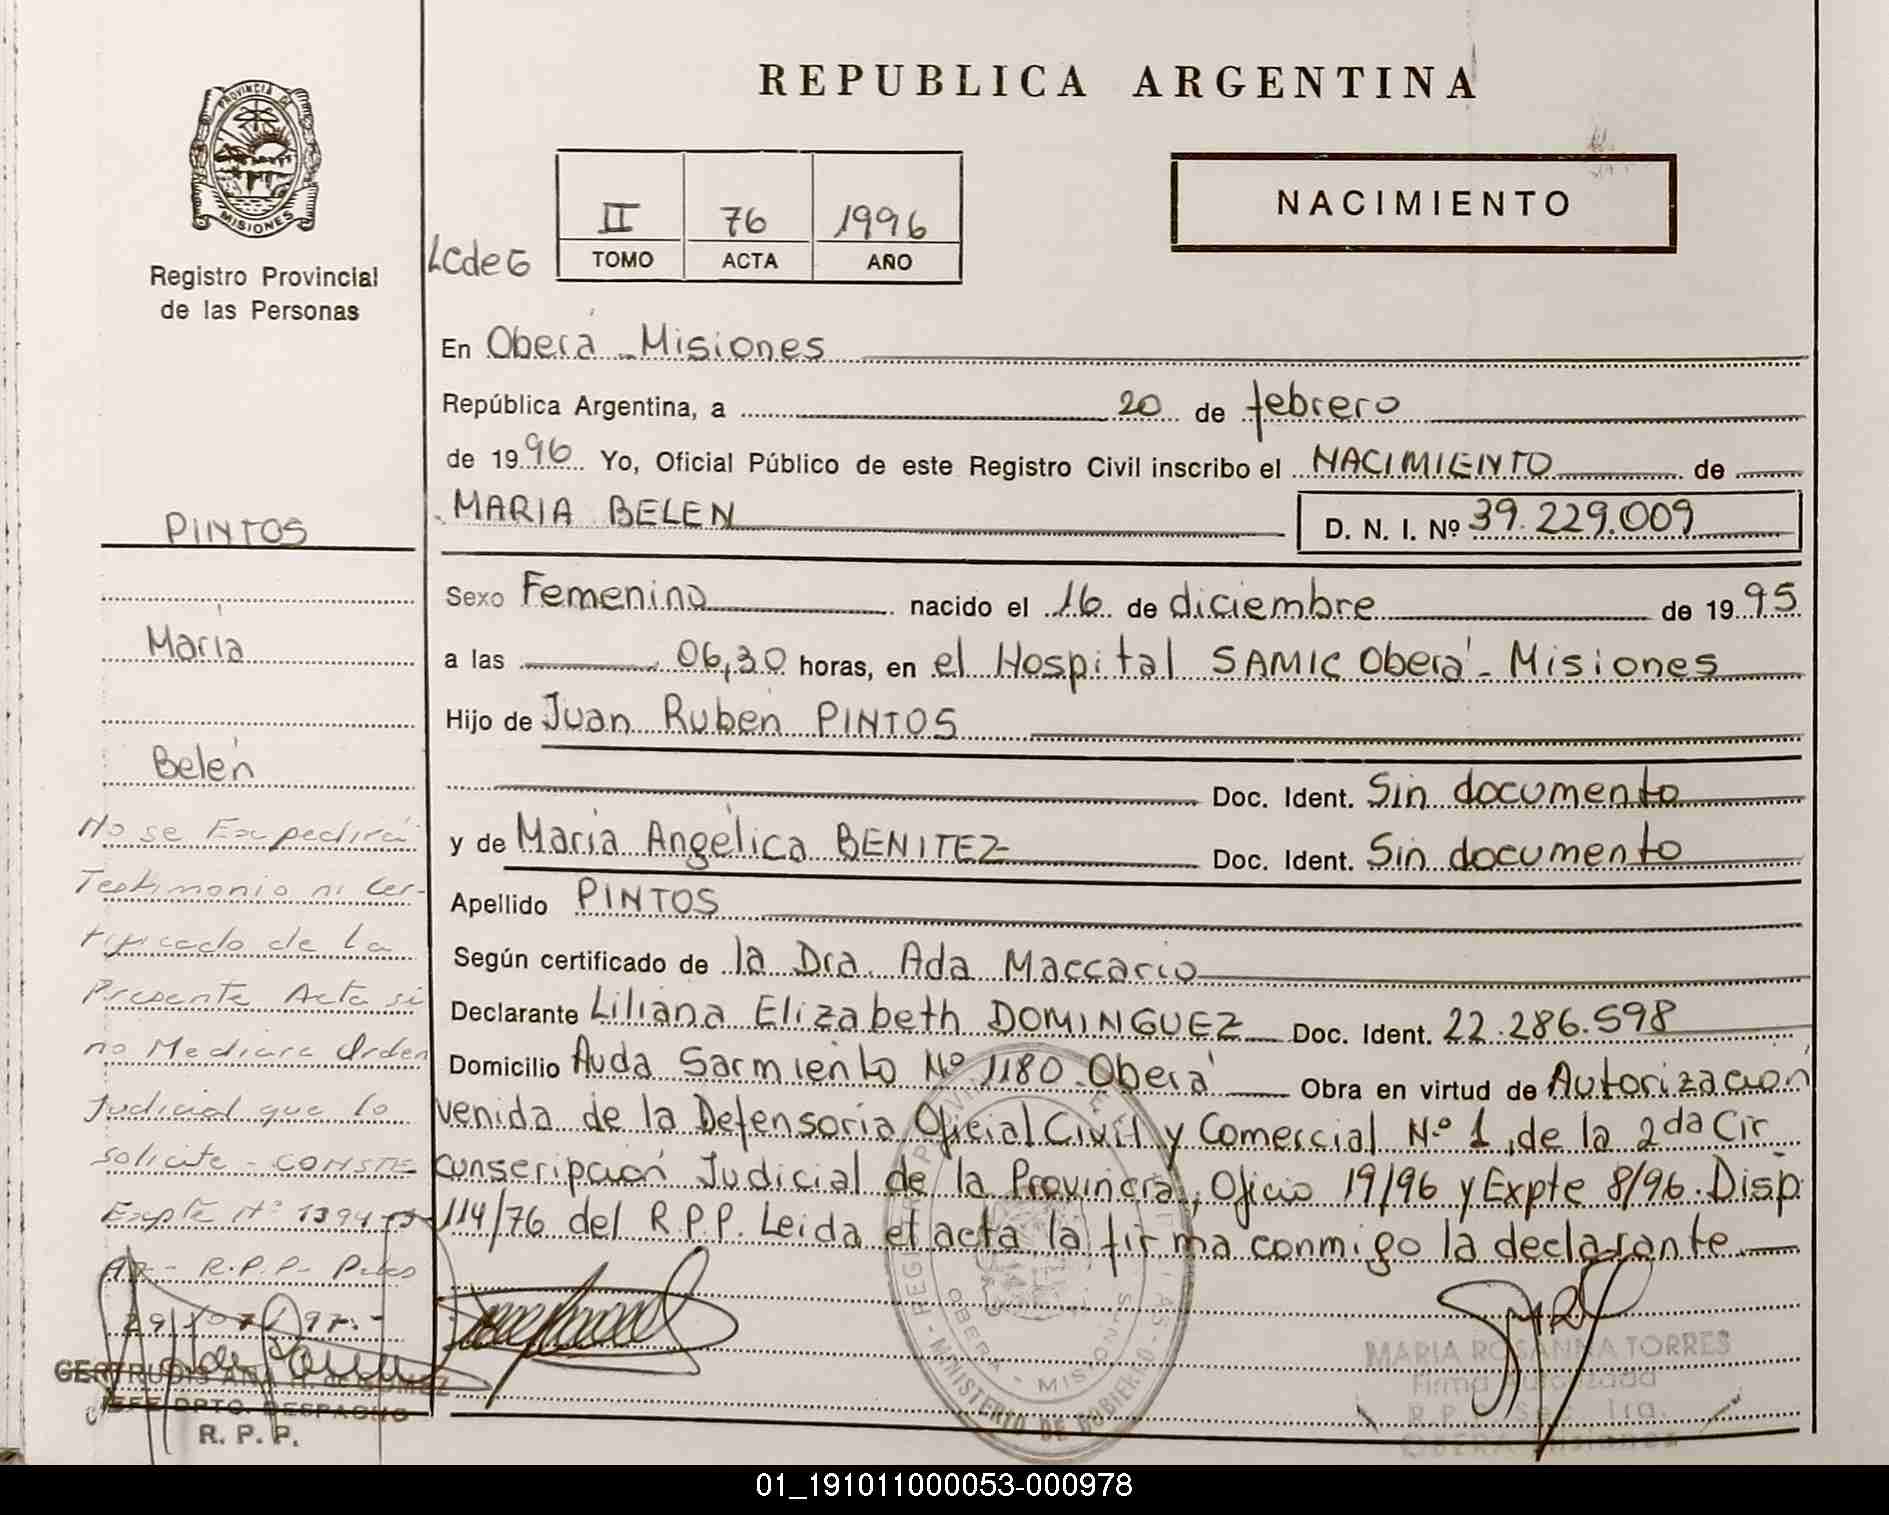 REPUBLICA ARGENTINA
PROVINCIA DE
MISIONES
Registro Provincial
de las Personas
NACIMIENTO
II 76 1996
TOMO ACTA AÑO
LCdeG
En Oberá - Misiones
República Argentina, a 20 de febrero
de 1996 Yo, Oficial Público de este Registro Civil inscribo el NACIMIENTO de
MARIA BELEN D. N. I. Nº 39.229.009
Sexo Femenino nacido el 16 de diciembre de 1995
a las 06,30 horas, en el Hospital SAMIC Oberá - Misiones
Hijo de Juan Ruben PINTOS
Doc. Ident. Sin documento
y de María Angélica BENITEZ Doc. Ident. Sin documento
Apellido PINTOS
Según certificado de la Dra. Ada Maccario
Declarante Liliana Elizabeth DOMINGUEZ Doc. Ident. 22.286.598
Domicilio Avda Sarmiento Nº 1180 Oberá Obra en virtud de Autorización
venida de la Defensoria Oficial Civil y Comercial Nº 1, de la 2da Cir
cunscripción Judicial de la Provincia, Oficio 19/96 y Expte 8/96. Disp.
114/76 del R.P.P. Leida el acta la firma conmigo la declarante
PINTOS
María
Belén
No se Expedirá
Testimonio ni Cer-
tificado de La
Presente Acta si
no Mediare Orden
Judicial que lo
solicite - CONSTE
Expte Nº 1394
R.P.P.
29/07/97.-
GERTRUDIS ANA GOMEZ
JEFE DPTO. DESPACHO
R. P. P.
MINISTERIO DE GOBIERNO
OBERA - MISIONES
MARIA ROSANNA TORRES
Firma Autorizada
R.P.P. Sec. 1ra.
OBERA Misiones
01_191011000053-000978